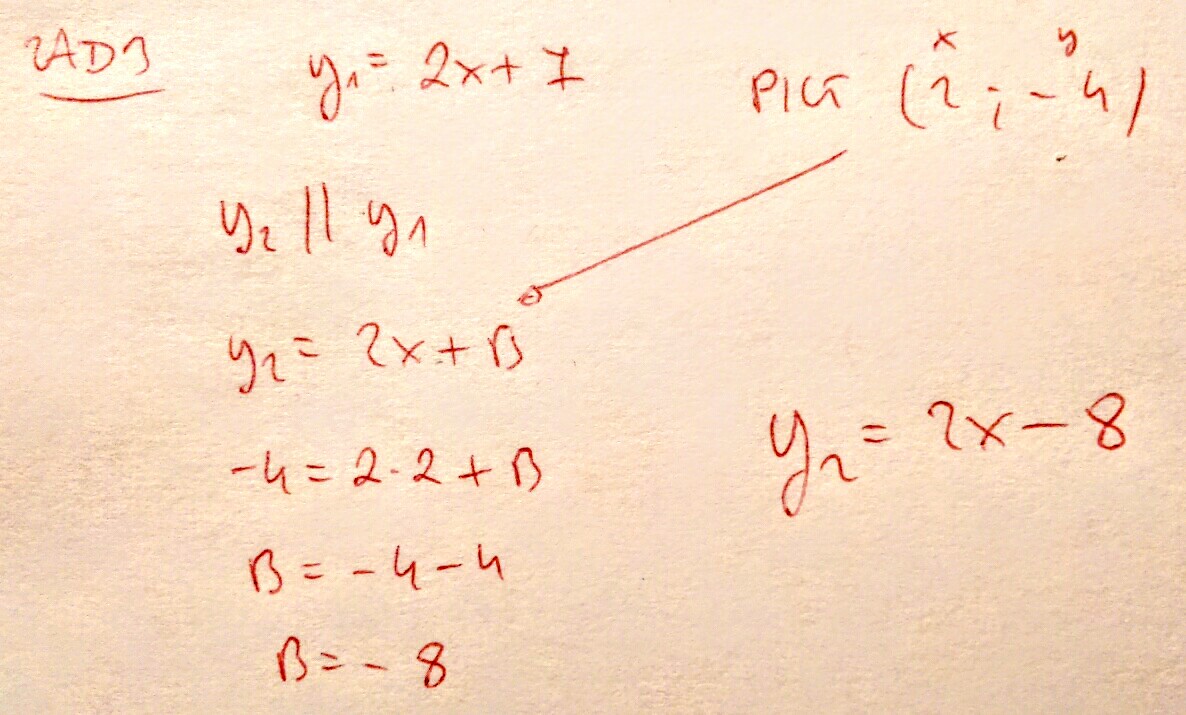 ZAD3
y₁ = 2x + 7
PKT (2; -4)
x y
y₂ || y₁
y₂ = 2x + B
-4 = 2·2 + B
B = -4-4
B = -8
y₂ = 2x - 8